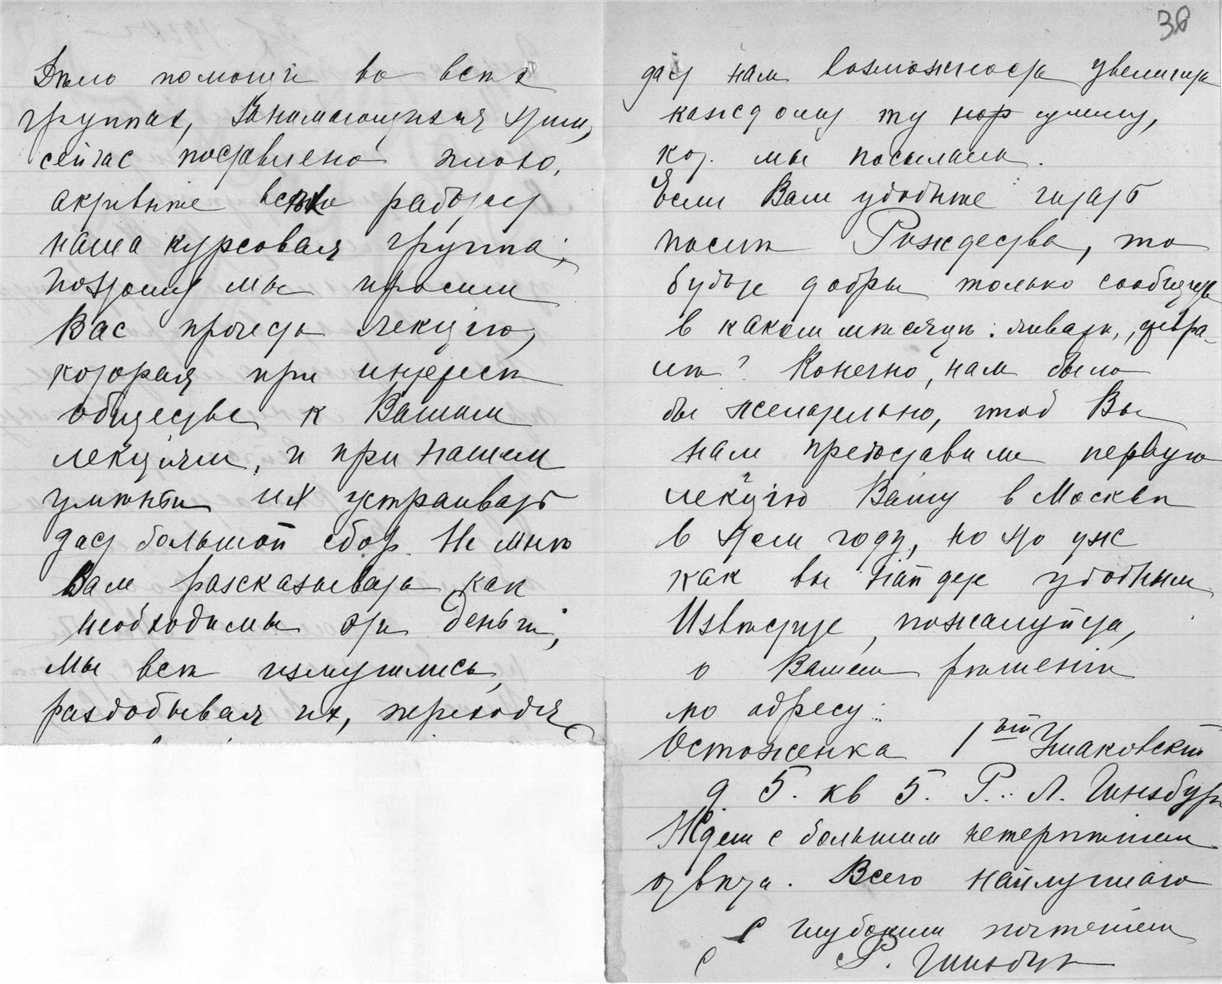 Дѣло помощи во всѣх
группах, занимающихся этим,
сейчас поставлено плохо,
активнѣе всѣх работает
наша курсовая группа;
поэтому мы просим
Вас прочесть лекцію,
которая при интересѣ
общества к Вашим
лекціям, и при нашем
умѣньи их устраивать
даст большой сбор. Не мнѣ
Вам рассказывать как
необходимы эти деньги,
мы всѣ измучились,
раздобывая их, переходя
38
даст нам возможность увеличить
каждому ту сумму,
кот. мы посылаем.
Если Вам удобнѣе читать
послѣ Рождества, то
будьте добры только сообщить
в каком мѣсяцѣ: январь, февра-
лѣ? Конечно, нам было
бы желательно, чтоб Вы
нам предоставили первую
лекцію Вашу в Москвѣ
в этом году, но это уж
как вы найдете удобным
Извѣстите, пожалуйста,
о Вашем рѣшеніи
по адресу:
Остоженка 1ый Ушаковскій
д. 5. кв 5. Р. Л. Гинзбург
Ждем с большим нетерпѣніем
отвѣта. Всего наилучшаго
С глубоким почтеніем
Р. Гинзбург